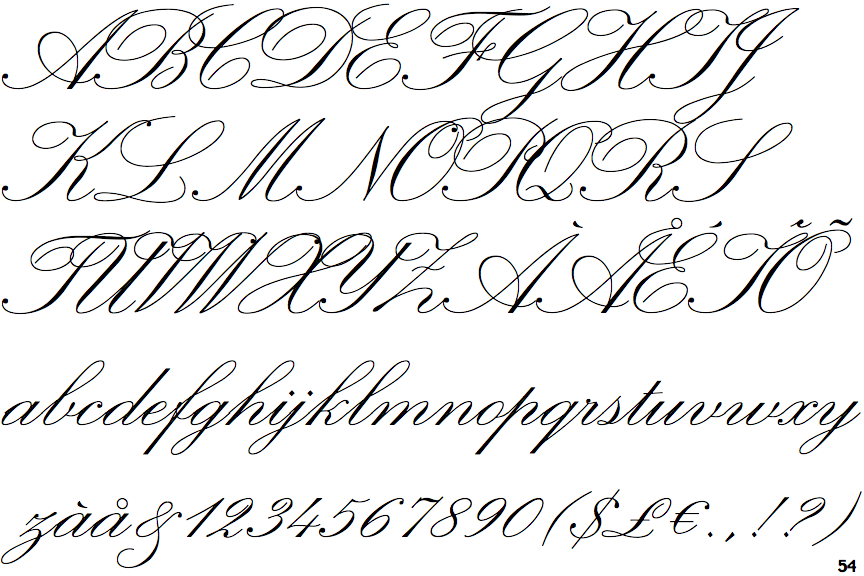 ABCDEFGHIJ
KLMNOPQRS
TUVWXYZÀÅÉÏÕ
abcdefghijklmnopqrstuvwxy
zàå&1234567890($£€.,!?)
54